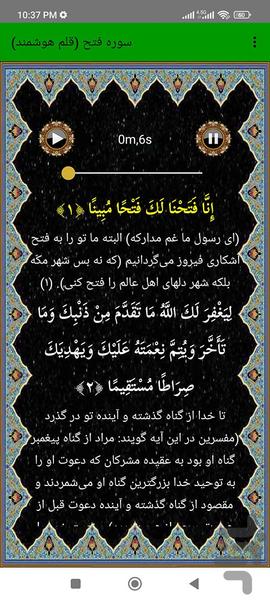 10:37 PM
4.5G
62
سوره فتح (قلم هوشمند)
0m,6s
إِنَّا فَتَحْنَا لَكَ فَتْحًا مُبِينًا ﴿۱﴾
(ای رسول ما غم مدارکه) البته ما تو را به فتح
آشکاری فیروز می‌گردانیم (که نه بس شهر مکه
بلکه شهر دلهای اهل عالم را فتح کنی). (۱)
لِيَغْفِرَ لَكَ اللَّهُ مَا تَقَدَّمَ مِنْ ذَنْبِكَ وَمَا
تَأَخَّرَ وَيُتِمَّ نِعْمَتَهُ عَلَيْكَ وَيَهْدِيَكَ
صِرَاطًا مُسْتَقِيمًا ﴿۲﴾
تا خدا از گناه گذشته و آینده تو در گذرد
(مفسرین در این آیه گویند: مراد از گناه پیغمبر
گناه او بود به عقیده مشرکان که دعوت او را
به توحید خدا بزرگترین گناه او می‌شمردند و
مقصود از گناه گذشته و آینده دعوت قبل از